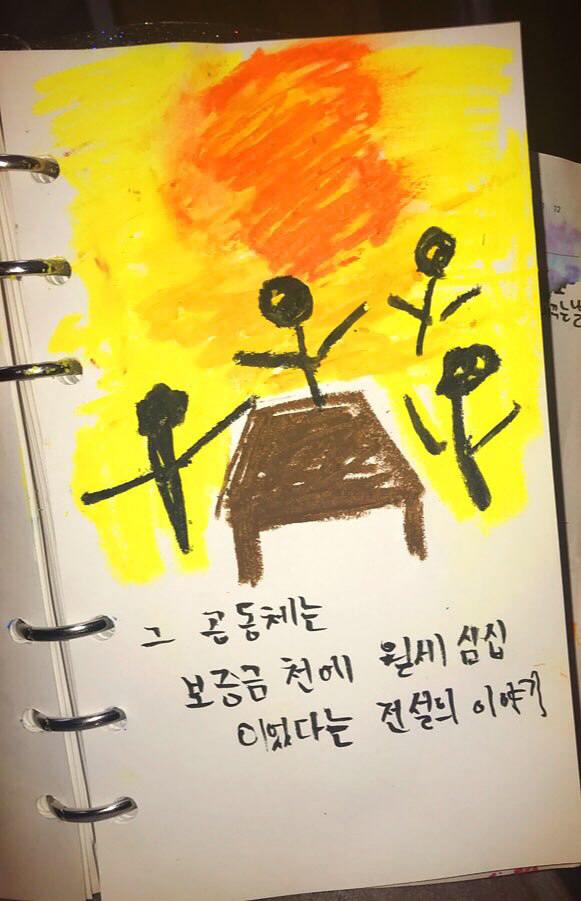 그 공동체는
보증금 천에 월세 삼십
이었다는 전설의 이야기
12